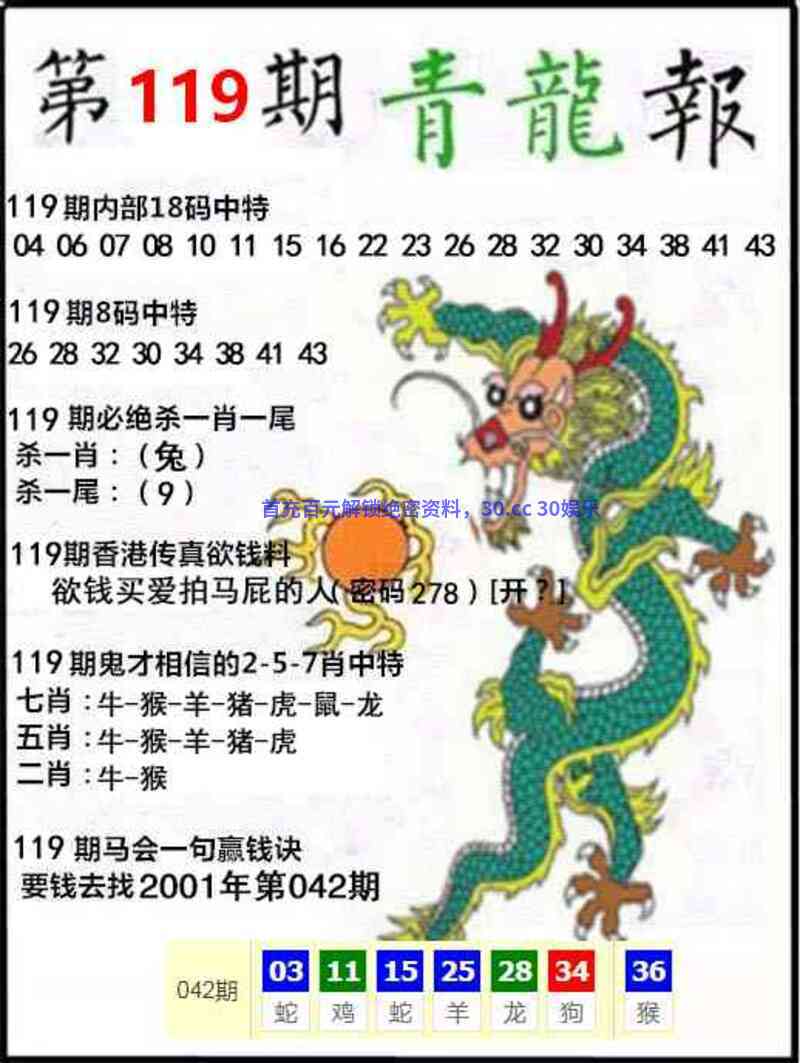 第119期青龍報
119期内部18码中特
04 06 07 08 10 11 15 16 22 23 26 28 32 30 34 38 41 43
119期8码中特
26 28 32 30 34 38 41 43
119期必绝杀一肖一尾
杀一肖：（兔）
杀一尾：（9）
首充百元解锁绝密资料，30.cc 30娱乐
119期香港传真欲钱料
欲钱买爱拍马屁的人(密码278)[开？]
119期鬼才相信的2-5-7肖中特
七肖：牛-猴-羊-猪-虎-鼠-龙
五肖：牛-猴-羊-猪-虎
二肖：牛-猴
119期马会一句赢钱诀
要钱去找2001年第042期
042期 03 11 15 25 28 34 36
蛇 鸡 蛇 羊 龙 狗 猴